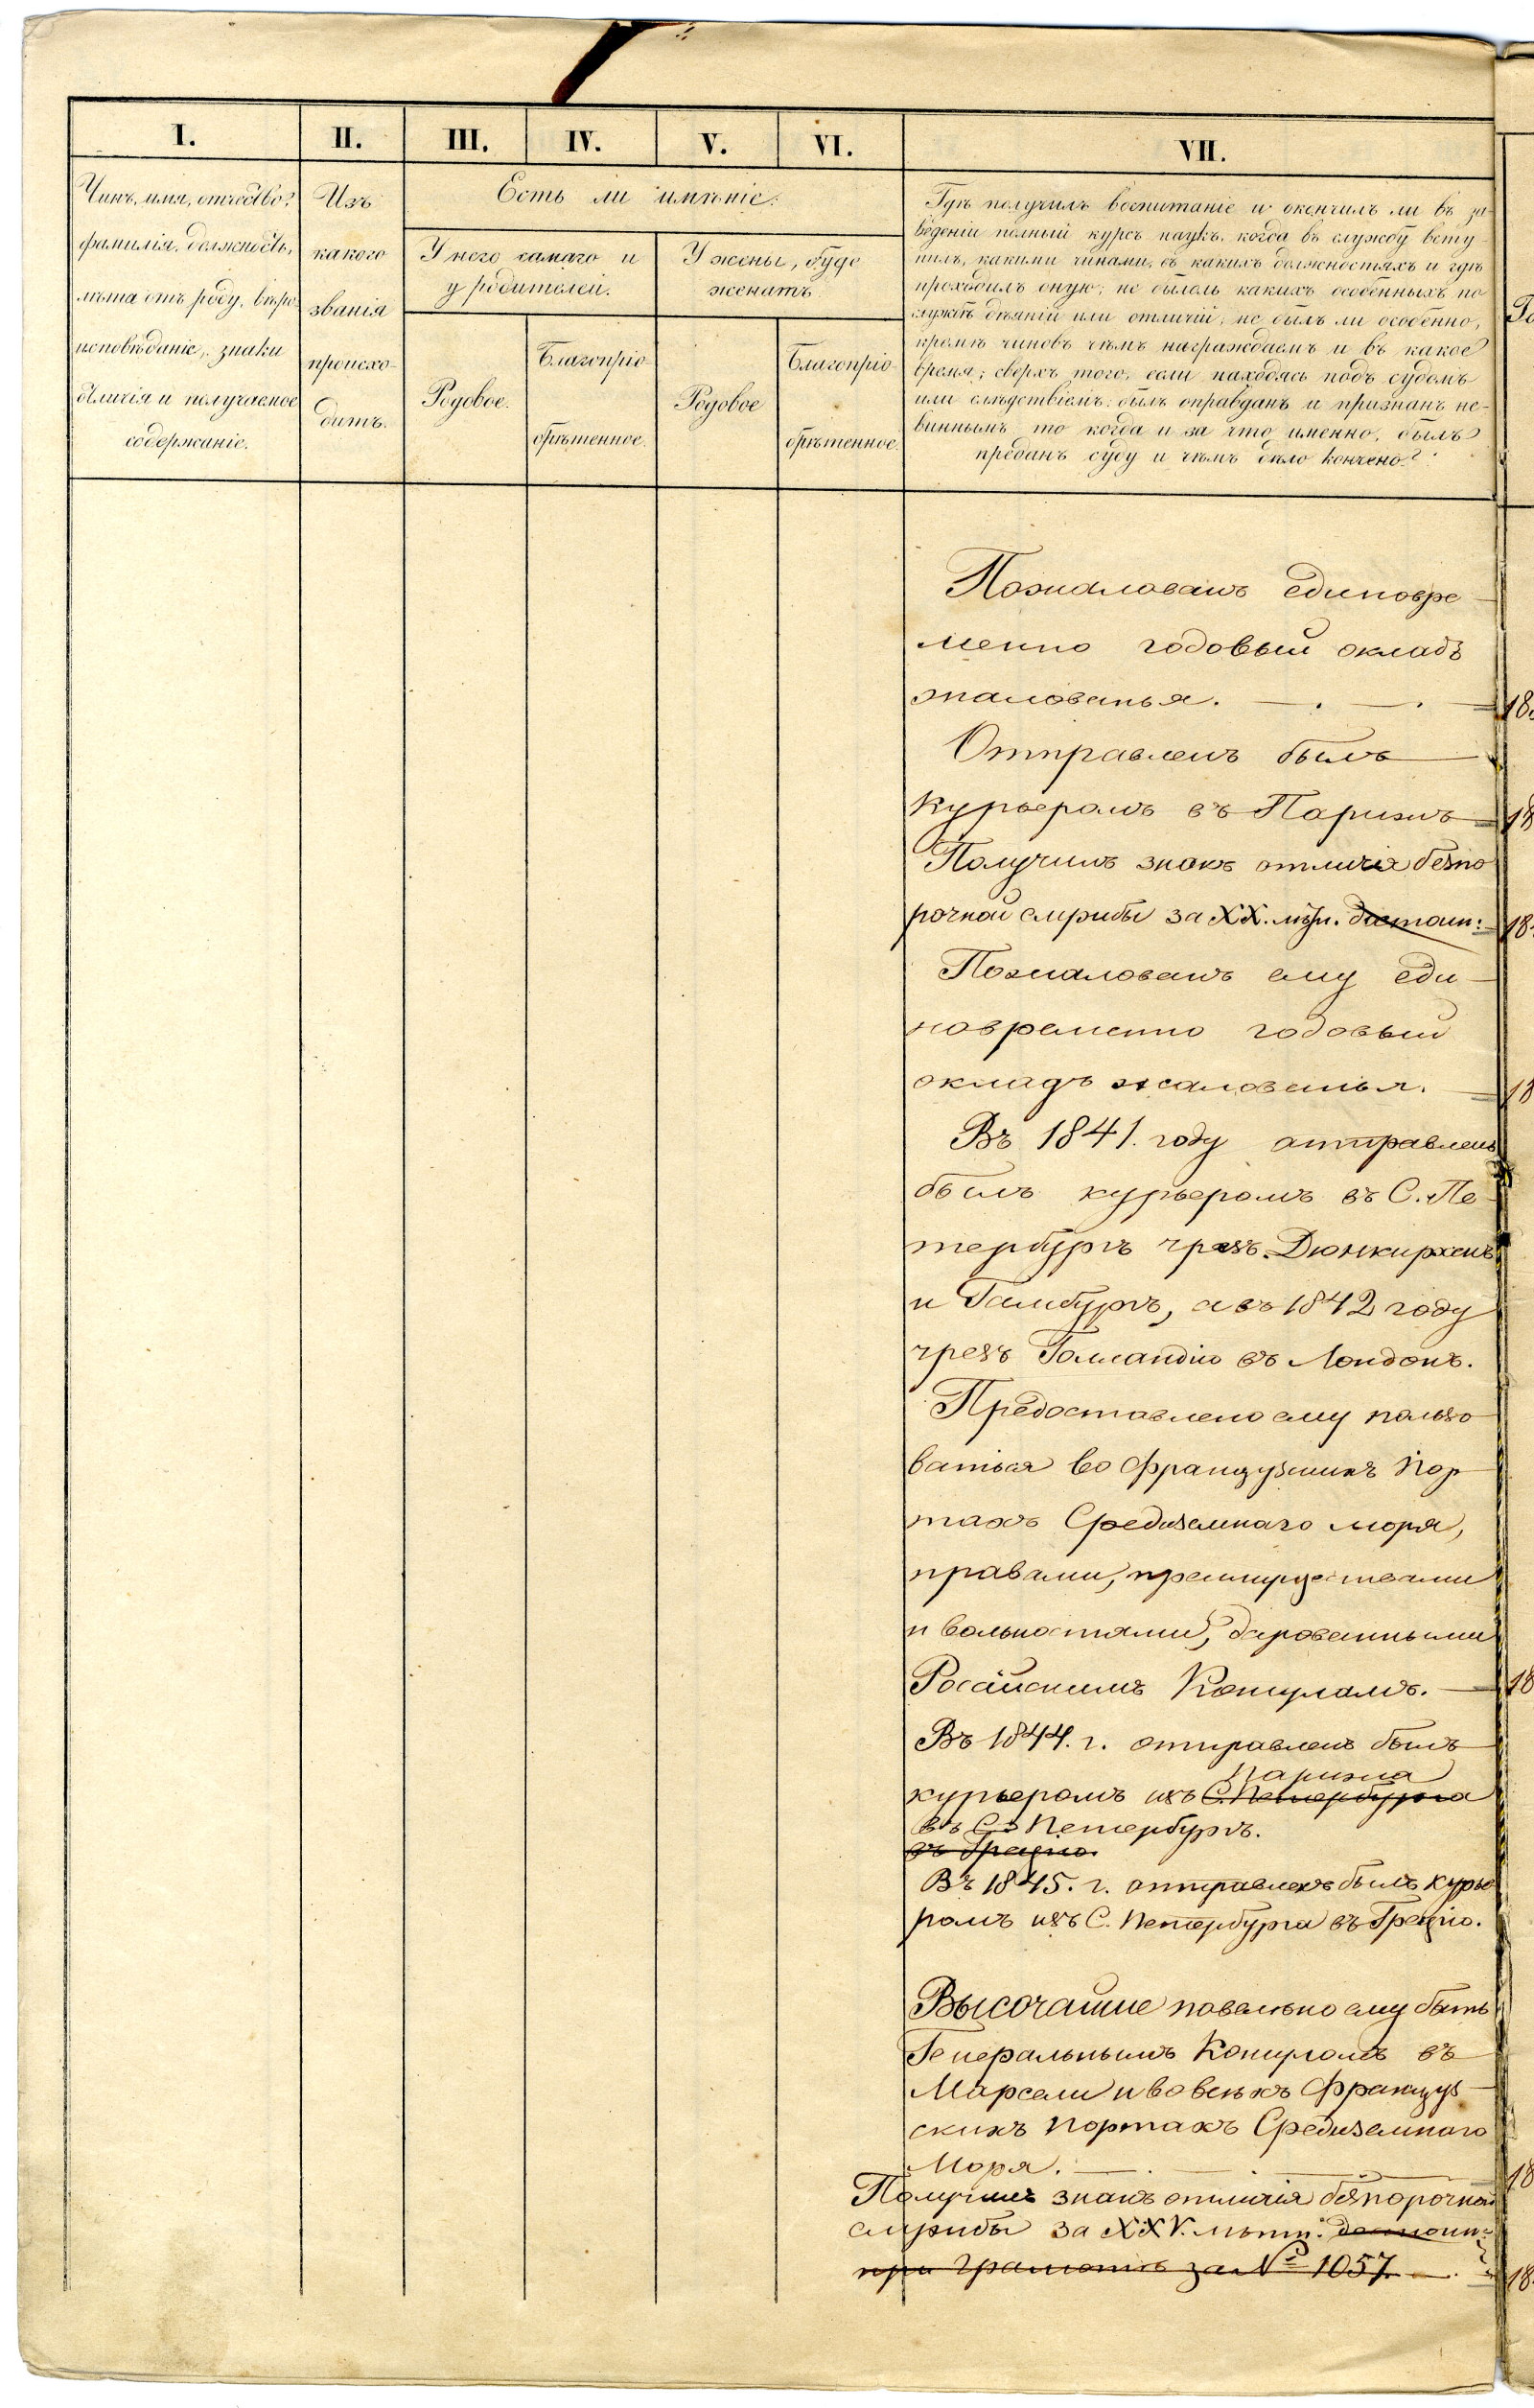 I.
II.
III.
IV.
V.
VI.
VII.
Чинъ, имя, отчество,
фамилія, должность,
лѣта отъ роду, вѣро-
исповѣданіе, знаки
отличія и получаемое
содержаніе.
Изъ
какого
званія
происхо-
дитъ.
Есть ли имѣніе.
У него самаго и
у родителей.
У жены, буде
женатъ
Родовое.
Благопріо-
брѣтенное.
Родовое
Благопріо-
брѣтенное.
Гдѣ получилъ воспитаніе и окончилъ ли въ за-
веденіи полный курсъ наукъ, когда въ службу всту-
пилъ, какими чинами, въ какихъ должностяхъ и гдѣ
проходилъ оную; не былоль какихъ особенныхъ по
службѣ дѣяній или отличій; не былъ ли особенно,
кромѣ чиновъ чѣмъ награждаемъ и въ какое
время; сверхъ того, если находясь подъ судомъ
или слѣдствіемъ; былъ оправданъ и признанъ не-
виннымъ то когда и за что именно, былъ
преданъ суду и чѣмъ дѣло кончено?
Пожалованъ единовре-
менно годовый окладъ
жалованья.
Отправленъ былъ
курьеромъ въ Парижъ
Получилъ знакъ отличія безпо
рочной службы за XX. лѣт. достоин:
Пожалованъ ему еди-
новременно годовый
окладъ жалованья.
Въ 1841. году отправленъ
былъ курьеромъ въ С. Пе-
тербургъ чрезъ Дюнкирхенъ
и Гамбургъ, а въ 1842 году
чрезъ Голландію въ Лондонъ.
Предоставлено ему пользо-
ваться во французскихъ пор-
тахъ Средиземнаго моря,
правами, преимуществами
и вольностями, дарованными
Россійскимъ Консуламъ.
Въ 1844. г. отправленъ былъ
Парижа
курьеромъ изъ С. Петербурга
въ С. Петербургъ.
въ Грецію.
Въ 1845. г. отправленъ былъ курье
ромъ изъ С. Петербурга въ Грецію.
Высочайше повелѣно ему быть
Генеральнымъ Консуломъ въ
Марсели и во всѣхъ Француз-
скихъ портахъ Средиземнаго
Моря.
Получилъ знакъ отличія безпорочной
службы за XXV. лѣтъ. достоин:
при Грамотѣ за № 1057.